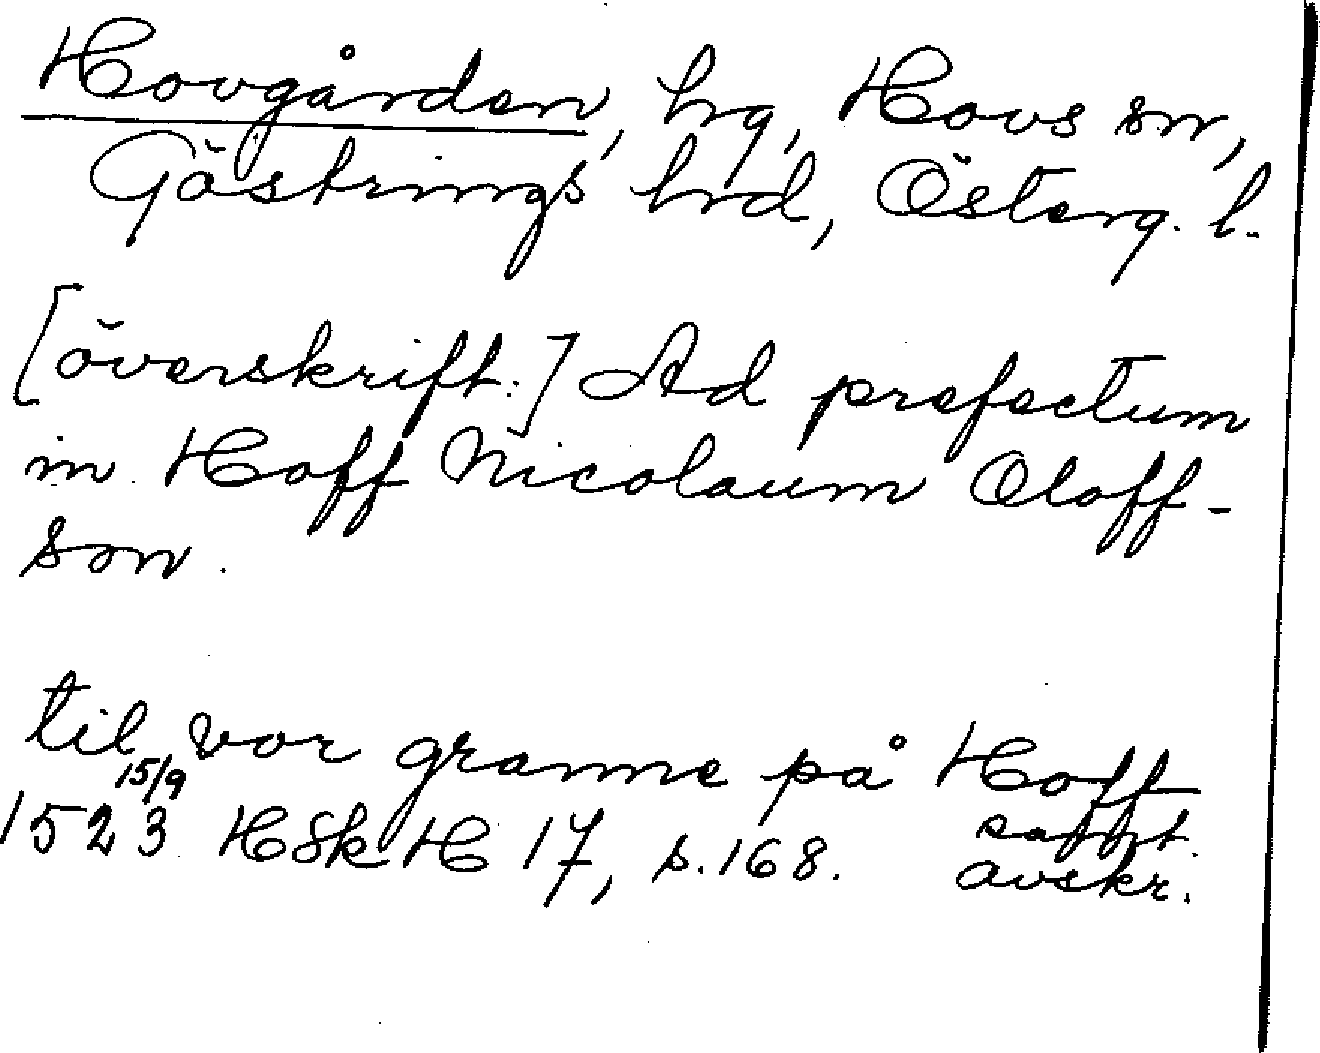 Hovgården, hg, Hovs sn,
Göstrings hrd, Österg. l.
[överskrift:] Ad prefectum
in Hoff Nicolaum Oloff-
son.
til vor granne på Hoff
15/9
1523 HSkH 17, s. 168.
samt.
avskr.